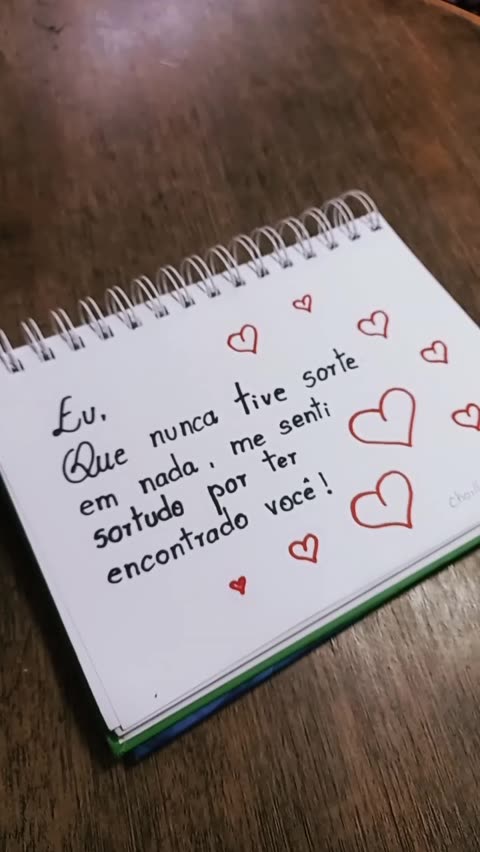 Eu,
Que nunca tive sorte
em nada, me senti
sortudo por ter
encontrado você!